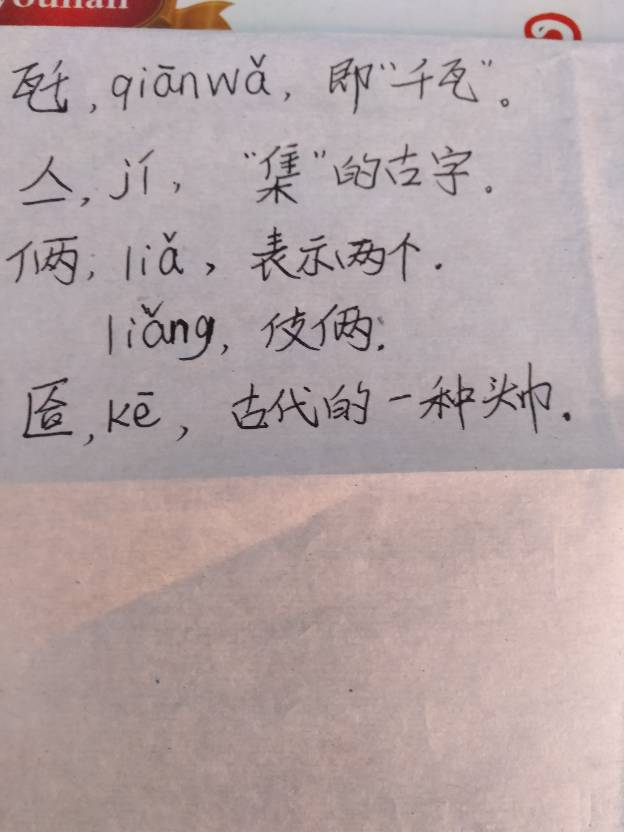 瓩, qiānwǎ, 即"千瓦"。
亼, jí, "集"的古字.
俩, liǎ, 表示两个.
liǎng, 伎俩.
匼, kē, 古代的一种头巾.